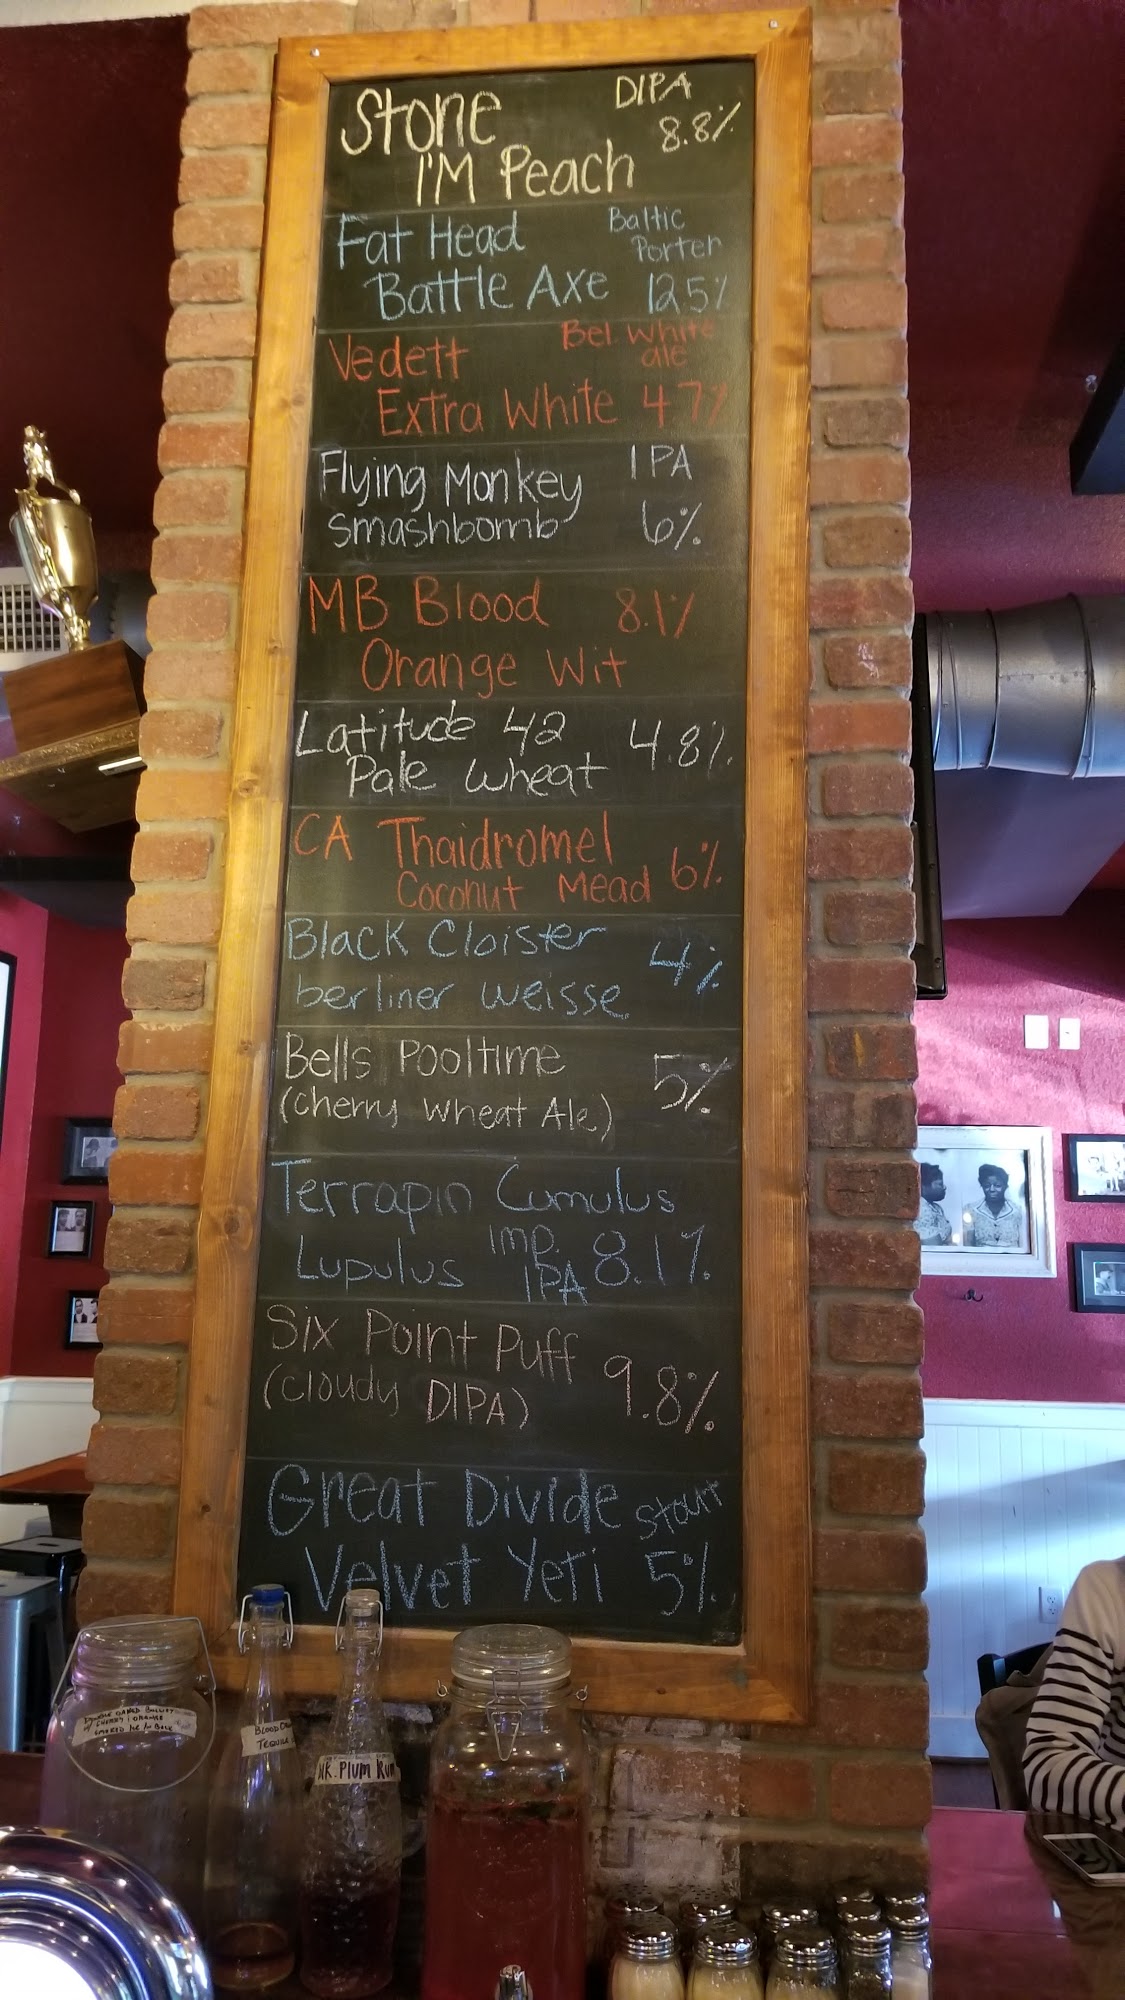 Stone DIPA
8.8%
I'M Peach
Fat Head Baltic
Porter
Battle Axe 12.5%
Vedett Bel. White
ale
Extra White 4.7%
Flying Monkey IPA
Smashbomb 6%
MB Blood 8.1%
Orange Wit
Latitude 42 4.8%
Pale Wheat
CA Thaidromel
Coconut Mead 6%
Black Cloister 4%
berliner weisse
Bells Pooltime 5%
(Cherry Wheat Ale)
Terrapin Cumulus
Lupulus Imp. 8.1%
IPA
Six Point Puff
(Cloudy DIPA) 9.8%
Great Divide Stout
Velvet Yeti 5%
Double Oaked
w/ Cherry & Orange
Blood
Tequila
Plum Rum